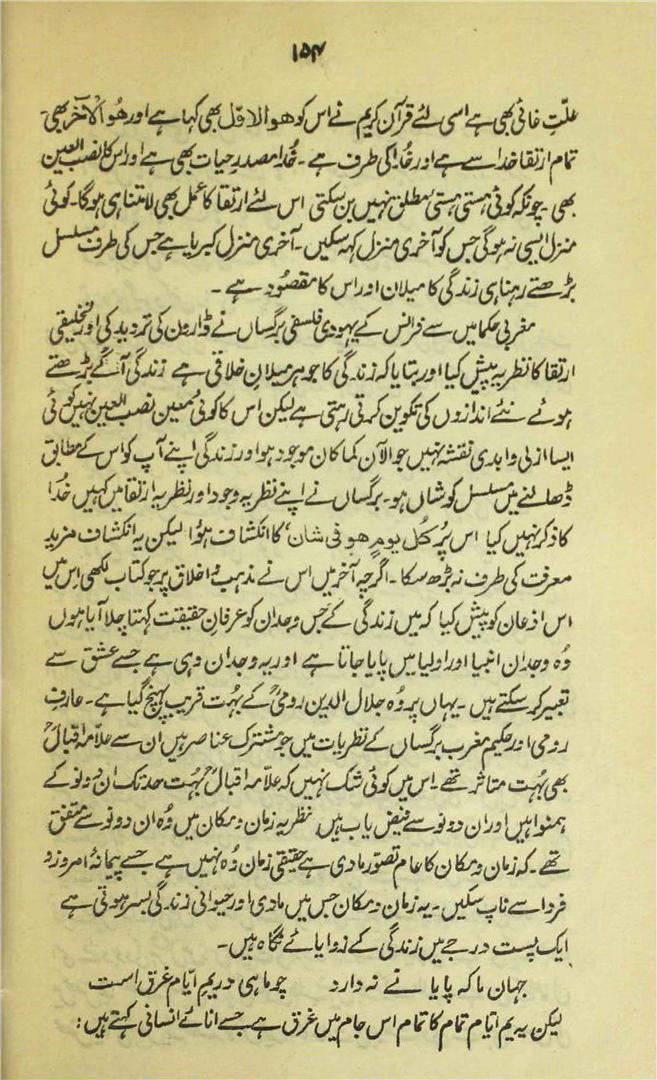 ۱۵۴
علّتِ غائی بھی ہے اسی لئے قرآن کریم نے اس کو ھو الاوّل بھی کہا ہے اور ھُو الآخر بھی۔
تمام ارتقا خدا سے ہے اور خُدا کی طرف ہے۔ خُدا مصدرِ حیات بھی ہے اور اس کا نصب العین
بھی۔ چونکہ کوئی ہستی ہستیٔ مطلق نہیں بن سکتی اس لئے ارتقا کا عمل بھی لامتناہی ہوگا۔ کوئی
منزل ایسی نہ ہوگی جس کو آخری منزل کہہ سکیں۔ آخری منزل کبریا ہے جس کی طرف مسلسل
بڑھتے رہنا ہی زندگی کا میلان اور اس کا مقصُود ہے۔
مغربی حکما میں سے فرانس کے یہودی فلسفی برگساں نے ڈارون کی تردید کی اور تخلیقی
ارتقا کا نظریہ پیش کیا اور بتایا کہ زندگی کا جوہر میلانِ خلاقی ہے زندگی آگے بڑھتے
ہوئے نئے اندازوں کی تکوین کرتی رہتی ہے لیکن اس کا کوئی معین نصب العین نہیں کوئی
ایسا ازلی و ابدی نقشہ نہیں جو الآن کما کان موجود ہو اور زندگی اپنے آپ کو اس کے مطابق
ڈھالنے میں مسلسل کوشاں ہو۔ برگساں نے اپنے نظریہ وجود اور نظریہ ارتقا میں کہیں خُدا
کا ذکر نہیں کیا اس پر کُل یومٍ ھو فی شان، کا انکشاف ہوُا لیکن یہ انکشاف مزید
معرفت کی طرف نہ بڑھ سکا۔ اگرچہ آخر میں اس نے مذہب و اخلاق پر جو کتاب لکھی اس میں
اس اذعان کو پیش کیا کہ میں زندگی کے جس وجدان کو عرفانِ حقیقت کہتا چلا آیا ہوں
وُہ وجدان انبیا اور اولیا میں پایا جاتا ہے اور یہ وجدان وہی ہے جسے عشق سے
تعبیر کر سکتے ہیں۔ یہاں پر وُہ جلال الدین رومیؒ کے بہُت قریب پہنچ گیا ہے۔ عارفِ
رومی اور حکیم مغرب برگساں کے نظریات میں جو مشترک عناصر ہیں ان سے علّامہ اقبالؒ
بھی بہُت متاثر تھے۔ اس میں کوئی شک نہیں کہ علّامہ اقبالؒ بہُت حد تک ان دونو کے
ہمنوا ہیں اور ان دونو سے فیض یاب ہیں، نظریہ زمان و مکان میں وُہ ان دونو سے متفق
تھے۔ کہ زمان و مکان کا عام تصوّر مادی ہے حقیقی زمان وُہ نہیں ہے جسے پیمانۂ امروز و
فردا سے ناپ سکیں۔ یہ زمان و مکان جس میں مادی اور حیوانی زندگی بسر ہوتی ہے
ایک پست درجے میں زندگی کے زوایائے نگاہ ہیں۔
جہان ما کہ پایا نے نہ دارد چو ماہی دریمِ ایّام غرق است
لیکن یہ یم ایّام تمام کا تمام اس جام میں غرق ہے جسے انائے انسانی کہتے ہیں :